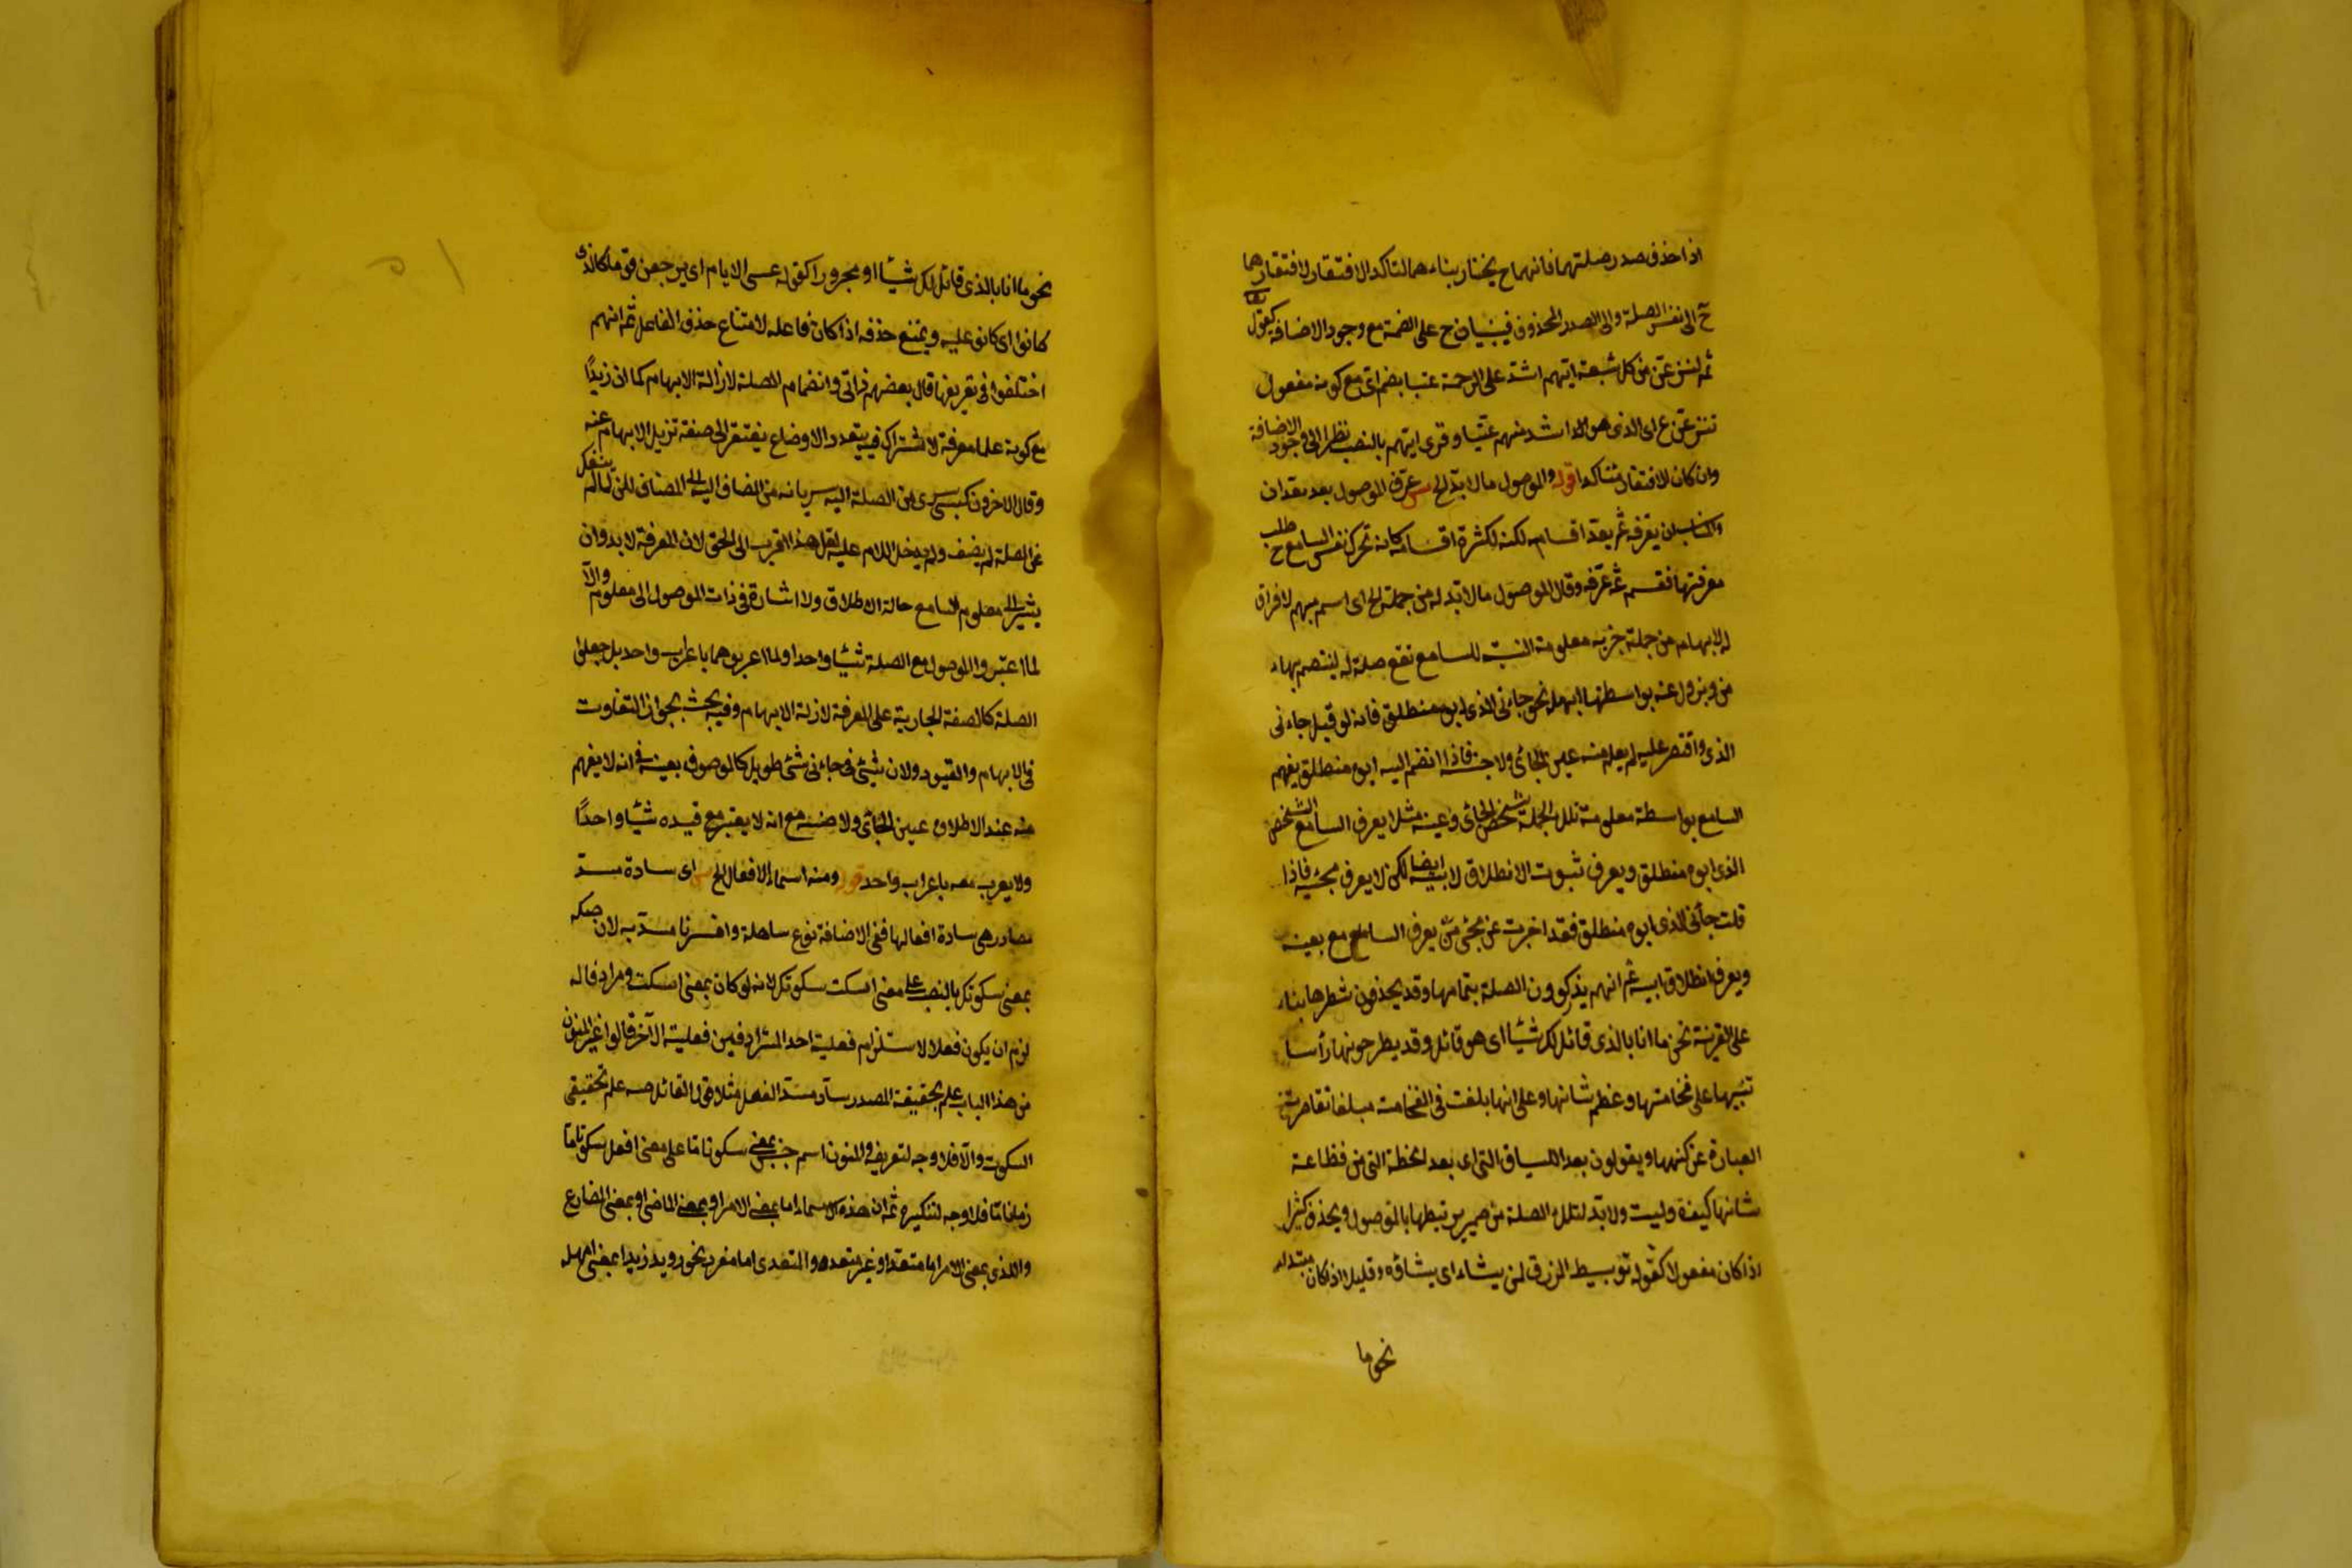 اذا حذف صدر صلتهما فانهما ح يختار بناءهما لتاكد الافتقار لافتقارهما
ح الى نفس الصلة والى الصدر المحذوف فيبنيان ح على الضمة مع وجود الاضافة كقوله تعالى
ثم لننزعن من كل شيعة ايهم اشد على الرحمن عتيا بضم اى مع كونه مفعول
ننزعن اى الذى هو اشد منهم عتيا وقرى ايهم بالنصب نظرا الى وجود الاضافة
وان كان الافتقار متاكدا قوله والموصول ما لا بد الخ عرف الموصول بعد بعد ان
والمناسب ان يعرفه ثم يعد اقسامه لكنه لكثرة اقسامه كانه تحرك نفس السامع ح طلب
معرفتها فقسم ثم عرفه وقال الموصول ما لا بد له من جملة الخ اى اسم مبهم لافراق
له لابهام من جملة خبريه معلومة النسبة للسامع تقع صلة له ليتصم بهاء
من ويزول عنه بواسطتها ابهامه نحو جاءنى الذى ابوه منطلق فانه لو قيل جاءنى
الذى واقتصر عليه لم يعلم منه عين الجائى ولا جنسه فاذا انضم اليه ابوه منطلق يفهم
السامع بواسطة معلومية تلك الجملة شخص الجائى وعينه مثلا يعرف السامع الشخص
الذى ابوه منطلق ويعرف ثبوت الانطلاق لابيه ايضا لكن لا يعرف مجيئه فاذا
قلت جاءنى الذى ابوه منطلق فقد اخبرت عن مجئ من يعرف السامع بعينه
ويعرف انطلاق ابيه ثم انهم يذكرون الصلة بتمامها وقد يحذفون شطرها بناء
على القرينة نحو ما انا بالذى قائل لك شيئا اى هو قائل وقد يطرحونها رأسا
تنبيها على فخامتها وعظم شانها وعلى انها بلغت فى الفخامة مبلغا تقاصرت
العبارة عن كنهها ويقولون بعد اللتيا والتى اى بعد الخطة التى من فظاعة
شانها كيت وليت ولا بد لتلك الصلة من ضمير يربطها بالموصول ويحذف كثيرا
اذا كان مفعولا كقوله يبسط الرزق لمن يشاء اى يشاؤه وقليلا اذا كان مبتداء
نحو ما
نحو ما انا بالذى قائل لك شيئا او مجرورا كقوله عسى الايام ان يرجعن قوما كالذى
كانوا اى كانوا عليه ويمتنع حذفه اذا كان فاعلا لامتناع حذف الفاعل ثم انهم
اختلفوا فى تعريفها قال بعضهم ذاتى وانضمام الصلة لازالة الابهام كما ان زيدا
مع كونه علما معرفة لاشتراك فيه بتعدد الاوضاع يفتقر الى صفة تزيل الابهام عنه
وقال الاخرون كسبى سرى من الصلة اليه سريانه من المضاف اليه الى المضاف لكن لما لم ينفك
عن الصلة لم يضف ولم يدخل اللام عليه لعل هذا اقرب الى الحق لان المعرفة لا بد وان
يشير الى معلوم السامع حالة الاطلاق ولا اشارة فى ذات الموصول الى معلوم والا
لما اعتبروا الموصول مع الصلة شيئا واحدا ولما اعربوهما باعراب واحد بل جعلوا
الصلة كالصفة الجارية على المعرفة لازالة الابهام وفيه بحث بجواز التفاوت
فى الابهام والقيود ولان شيئ فى جاءنى شئ طويل كالموصوف بعينه فى انه لا يفهم
منه عند الاطلاق عين الجائى ولا صنفه مع انه لا يعتبر مع قيده شيئا واحدا
ولا يعرب معه باعراب واحد قوله ومنه اسماء الافعال الخ اى سادة مسد
مصادر هى سادة افعالها ففى الاضافة نوع ساهلة وافسرنا مسد به لان صكه
بمعنى سكوتك بالنصب على معنى اسكت سكوتك لانه لو كان بمعنى اسكت ومرادفا له
لزم ان يكون فعلا لاستلزام فعلية احد المترادفين فعلية الآخر قالوا غير المنون
من هذا الباب علم بحقيقة المصدر سادة مسد الفعل مثلا قول القائل صه علم تحقيقى
السكوت والا فلا وجه لتعريفه والمنون اسم جنس بمعنى سكوتا ما على معنى افعل سكوتا ما
زمانا ما فلا وجه لتنكيره ثم ان هذه الاسماء اما بمعنى الامر او بمعنى الماضى او بمعنى المضارع
والذى بمعنى الامر اما متعد او غير متعد والمتعدى اما مفرد نحو رويد زيدا بمعنى امهله